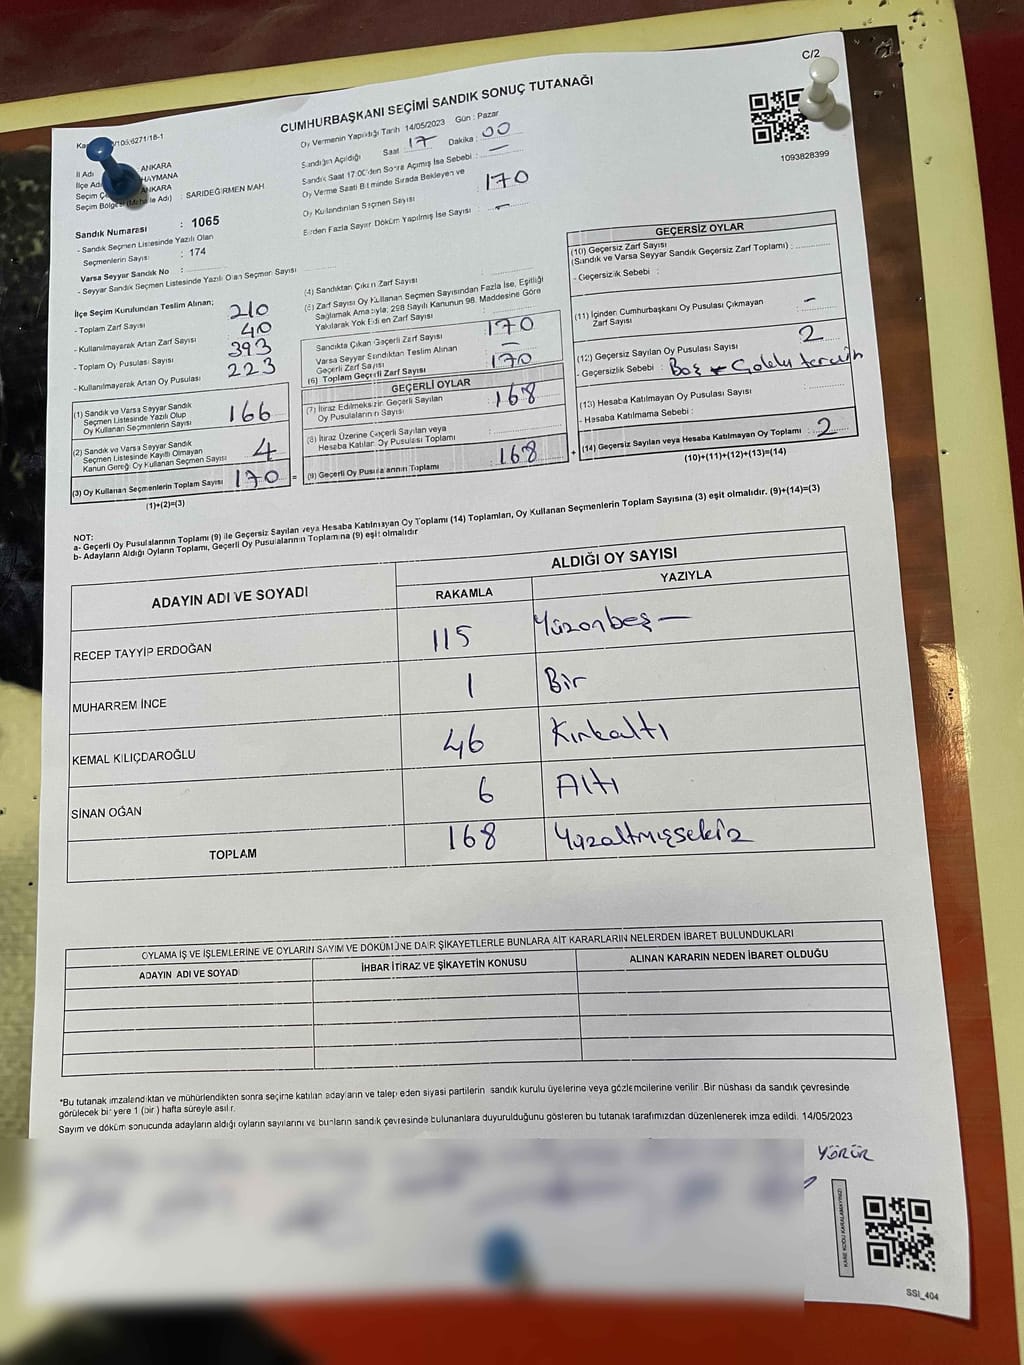 C/2
CUMHURBAŞKANI SEÇİMİ SANDIK SONUÇ TUTANAĞI
1093828399
İl Adı ANKARA
İlçe Adı HAYMANA
Seçim ANKARA
Seçim Bölgesi (Mahalle Adı) : SARIDEĞİRMEN MAH
Sandık Numarası : 1065
- Sandık Seçmen Listesinde Yazılı Olan
Seçmenlerin Sayısı : 174
Varsa Seyyar Sandık No :
- Seyyar Sandık Seçmen Listesinde Yazılı Olan Seçmen Sayısı
Oy Vermenin Yapıldığı Tarih 14/05/2023 Gün : Pazar
Sandığın Açıldığı Saat 17 Dakika : 00
Sandık Saat 17:00'den Sonra Açılmış İse Sebebi : —
Oy Verme Saati Bitiminde Sırada Bekleyen ve
Oy Kullandırılan Seçmen Sayısı 170
Birden Fazla Sayım Döküm Yapılmış İse Sayısı : —
İlçe Seçim Kurulundan Teslim Alınan;
- Toplam Zarf Sayısı 210
- Kullanılmayarak Artan Zarf Sayısı 40
- Toplam Oy Pusulası Sayısı 393
- Kullanılmayarak Artan Oy Pusulası 223
(1) Sandık ve Varsa Seyyar Sandık
Seçmen Listesinde Yazılı Olup
Oy Kullanan Seçmenlerin Sayısı 166
(2) Sandık ve Varsa Seyyar Sandık
Seçmen Listesinde Kayıtlı Olmayan
Kanun Gereği Oy Kullanan Seçmen Sayısı 4
(3) Oy Kullanan Seçmenlerin Toplam Sayısı 170
(1)+(2)=(3)
(4) Sandıktan Çıkan Zarf Sayısı
(5) Zarf Sayısı Oy Kullanan Seçmen Sayısından Fazla İse, Eşitliği
Sağlamak Amacıyla; 298 Sayılı Kanunun 98. Maddesine Göre
Yakılarak Yok Edilen Zarf Sayısı :
Sandıkta Çıkan Geçerli Zarf Sayısı 170
Varsa Seyyar Sandıktan Teslim Alınan
Geçerli Zarf Sayısı —
(6) Toplam Geçerli Zarf Sayısı 170
GEÇERLİ OYLAR
(7) İtiraz Edilmeksizin Geçerli Sayılan
Oy Pusulalarının Sayısı 168
(8) İtiraz Üzerine Geçerli Sayılan veya
Hesaba Katılan Oy Pusulası Toplamı :
= (9) Geçerli Oy Pusulalarının Toplamı : 168
GEÇERSİZ OYLAR
(10) Geçersiz Zarf Sayısı
(Sandık ve Varsa Seyyar Sandık Geçersiz Zarf Toplamı) :
- Geçersizlik Sebebi :
(11) İçinden Cumhurbaşkanı Oy Pusulası Çıkmayan
Zarf Sayısı —
(12) Geçersiz Sayılan Oy Pusulası Sayısı 2
- Geçersizlik Sebebi : Boş
(13) Hesaba Katılmayan Oy Pusulası Sayısı :
- Hesaba Katılmama Sebebi :
+ (14) Geçersiz Sayılan veya Hesaba Katılmayan Oy Toplamı : 2
(10)+(11)+(12)+(13)=(14)
NOT:
a- Geçerli Oy Pusulalarının Toplamı (9) ile Geçersiz Sayılan veya Hesaba Katılmayan Oy Toplamı (14) Toplamları, Oy Kullanan Seçmenlerin Toplam Sayısına (3) eşit olmalıdır. (9)+(14)=(3)
b- Adayların Aldığı Oyların Toplamı, Geçerli Oy Pusulalarının Toplamına (9) eşit olmalıdır
ADAYIN ADI VE SOYADI ALDIĞI OY SAYISI
RAKAMLA YAZIYLA
RECEP TAYYİP ERDOĞAN 115 Yüzonbeş —
MUHARREM İNCE 1 Bir
KEMAL KILIÇDAROĞLU 46 Kırkaltı
SİNAN OĞAN 6 Altı
TOPLAM 168 Yüzaltmışsekiz
OYLAMA İŞ VE İŞLEMLERİNE VE OYLARIN SAYIM VE DÖKÜMÜNE DAİR ŞİKAYETLERLE BUNLARA AİT KARARLARIN NELERDEN İBARET BULUNDUKLARI
ADAYIN ADI VE SOYADI İHBAR İTİRAZ VE ŞİKAYETİN KONUSU ALINAN KARARIN NEDEN İBARET OLDUĞU
*Bu tutanak imzalandıktan ve mühürlendikten sonra seçime katılan adayların ve talep eden siyasi partilerin sandık kurulu üyelerine veya gözlemcilerine verilir. Bir nüshası da sandık çevresinde
görülecek bir yere 1 (bir) hafta süreyle asılır.
Sayım ve döküm sonucunda adayların aldığı oyların sayılarını ve bunların sandık çevresinde bulunanlara duyurulduğunu gösteren bu tutanak tarafımızdan düzenlenerek imza edildi. 14/05/2023
YÖRÜR
KARE KODU KARALAMAYINIZ!
SSI_404